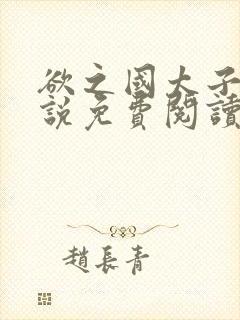 欲之國大子
說免費閱讀
趙長青